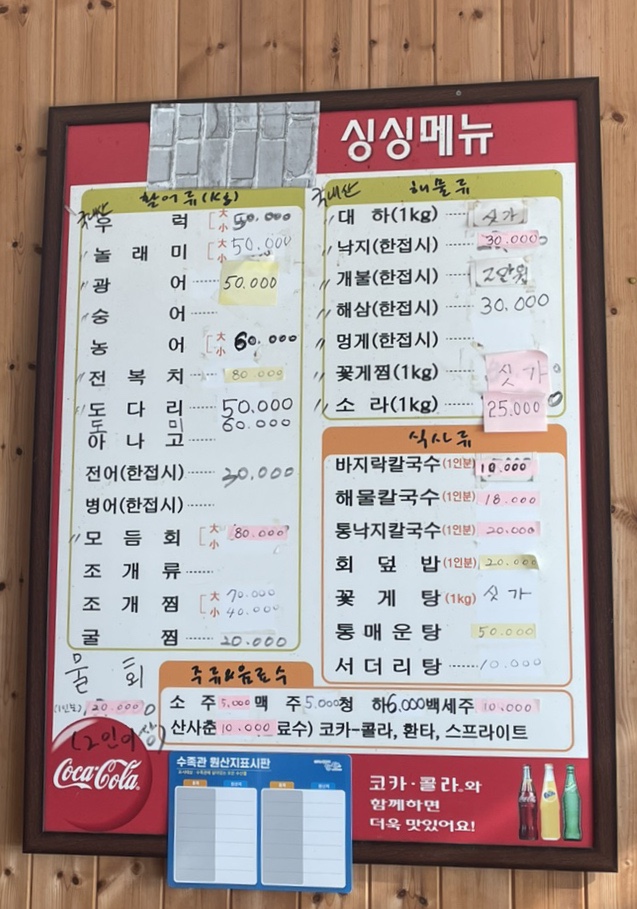 싱싱메뉴
국내산 활어류(kg)
우 럭 대 소 50.000
놀 래 미 대 소 50.000
광 어 50.000
숭 어
농 어 大 小 60.000
전 복 치 80.000
도 다 리 50.000
도 미 60.000
아 나 고
전어(한접시) 20.000
병어(한접시)
모 듬 회 大 小 80.000
조 개 류
조 개 찜 大 小 70.000 40.000
굴 찜 20.000
물 회
(1인분) 20.000
(2인이상)
국내산 해물류
대 하(1kg) 싯가
낙지(한접시) 30.000
개불(한접시) 2만원
해삼(한접시) 30.000
멍게(한접시)
꽃게찜(1kg) 싯가
소 라(1kg) 25.000
식사류
바지락칼국수(1인분) 10.000
해물칼국수(1인분) 18.000
통낙지칼국수(1인분) 20.000
회 덮 밥(1인분) 20.000
꽃 게 탕(1kg) 싯가
통 매 운 탕 50.000
서 더 리 탕 10.000
주류&음료수
소 주 5.000 맥 주 5.000 청 하 6.000 백세주 10.000
산사춘 10.000 료수) 코카-콜라, 환타, 스프라이트
Coca-Cola
수족관 원산지표시판
코카·콜라와
함께하면
더욱 맛있어요!